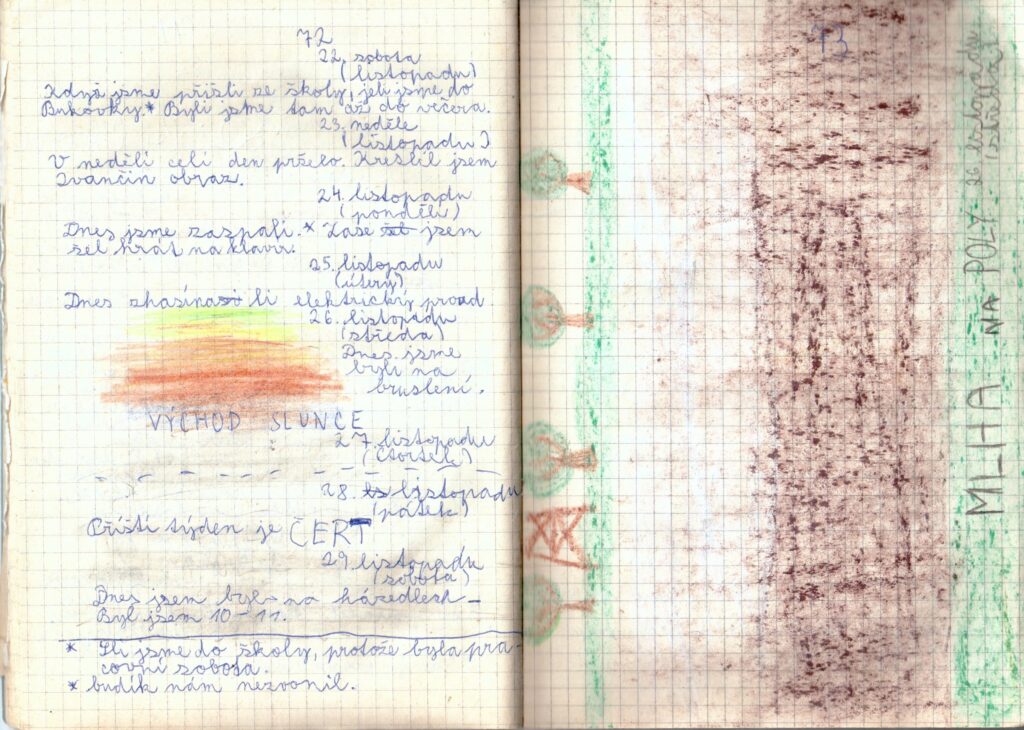 72
22. sobota
(listopadu)
Když jsme přišli ze školy, jeli jsme do
Bukovky.* Byli jsme tam až do večera.
23. neděle
(listopadu)
V neděli celí den pršelo. Kreslil jsem
Ivančin obraz.
24. listopadu
(pondělí)
Dnes jsme zaspali.* Zase jsem
šel hrát na klavír.
25. listopadu
(úterý)
Dnes zhasínali elektrický proud
26. listopadu
(středa)
Dnes jsme
byli na
bruslení.
VÝCHOD SLUNCE
27. listopadu
(čtvrtek)
28. listopadu
(pátek)
Příští týden je ČERT
29 listopadu
(sobota)
Dnes jsem byl na házedlech –
Byl jsem 10–11.
* Šli jsme do školy, protože byla pra-
covní sobota.
* budík nám nezvonil.
73
MLHA NA POLY 26 listopadu
(středa)